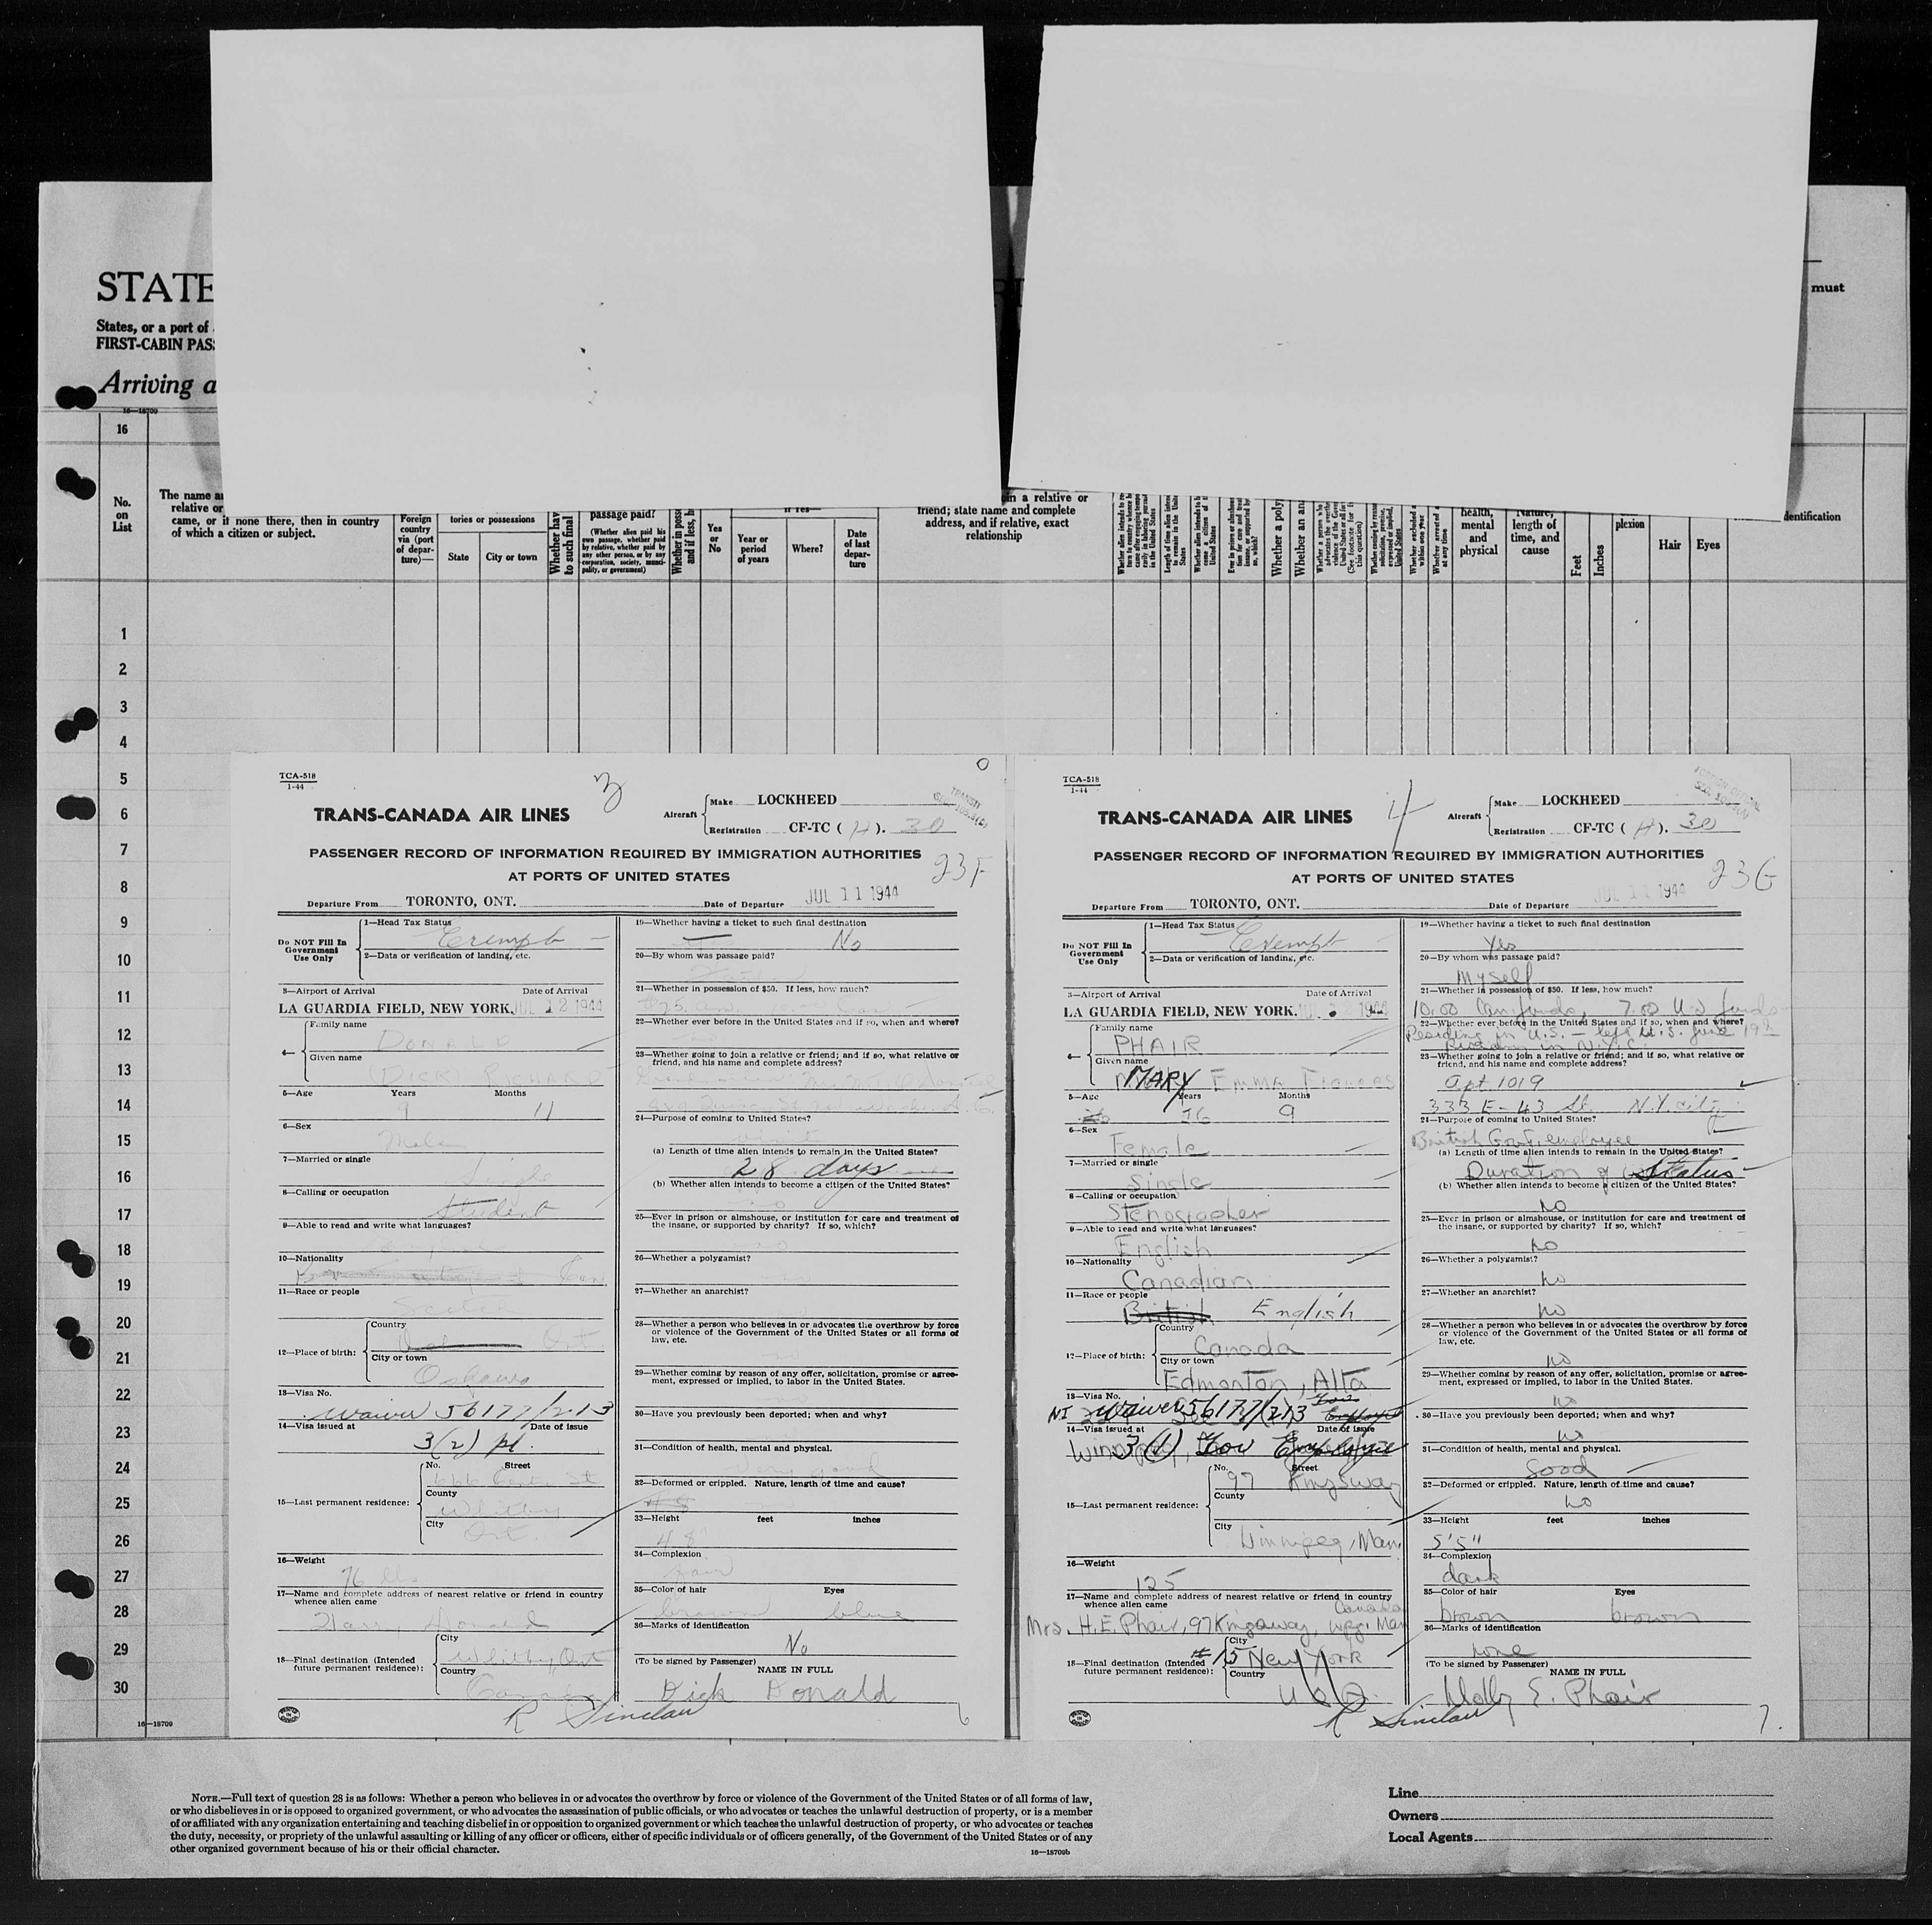 STATE
must
States, or a port of
FIRST-CABIN PAS
Arriving a
16—18709
16
No.
on
List
The name a
relative or
came, or if none there, then in country
of which a citizen or subject.
Foreign
country
via (port
of depar-
ture)—
tories or possessions
State
City or town
Whether hav
to such final
passage paid?
(Whether alien paid his
own passage, whether paid
by relative, whether paid by
any other person, or by any
corporation, society, munici-
pality, or government)
Whether in poss
and if less, h
Yes
or
No
If Yes—
Year or
period
of years
Where?
Date
of last
depar-
ture
in a relative or
friend; state name and complete
address, and if relative, exact
relationship
Whether a poly
Whether an an
health,
mental
and
physical
Nature,
length of
time, and
cause
Feet
Inches
plexion
Hair
Eyes
dentification
1
2
3
4
5
6
7
8
9
10
11
12
13
14
15
16
17
18
19
20
21
22
23
24
25
26
27
28
29
30
16—18709
TCA-518
1-44
3
TRANS-CANADA AIR LINES
Aircraft
Make LOCKHEED
Registration CF-TC ( H ). 30
PASSENGER RECORD OF INFORMATION REQUIRED BY IMMIGRATION AUTHORITIES
AT PORTS OF UNITED STATES
23F
Departure From TORONTO, ONT. Date of Departure JUL 11 1944
Do NOT Fill In
Government
Use Only
1—Head Tax Status
Exempt
2—Data or verification of landing, etc.
3—Airport of Arrival Date of Arrival
LA GUARDIA FIELD, NEW YORK. JUL 12 1944
4—
Family name
DONALD
Given name
DICK RICHARD
5—Age Years Months
9 11
6—Sex
Male
7—Married or single
Single
8—Calling or occupation
Student
9—Able to read and write what languages?
10—Nationality
Can
11—Race or people
Scotch
12—Place of birth:
Country
Ont
City or town
Oshawa
13—Visa No.
Waiver 56177/213
14—Visa issued at Date of issue
3(2) pl.
15—Last permanent residence:
No. Street
St
County
Whitby
City
Ont.
16—Weight
76 lbs
17—Name and complete address of nearest relative or friend in country
whence alien came
Donald
18—Final destination (Intended
future permanent residence):
City
Whitby, Ont
Country
Canada
R Sinclair
19—Whether having a ticket to such final destination
No
20—By whom was passage paid?
21—Whether in possession of $50. If less, how much?
22—Whether ever before in the United States and if so, when and where?
23—Whether going to join a relative or friend; and if so, what relative or
friend, and his name and complete address?
24—Purpose of coming to United States?
visit
(a) Length of time alien intends to remain in the United States?
28 days
(b) Whether alien intends to become a citizen of the United States?
no
25—Ever in prison or almshouse, or institution for care and treatment of
the insane, or supported by charity? If so, which?
no
26—Whether a polygamist?
27—Whether an anarchist?
28—Whether a person who believes in or advocates the overthrow by force
or violence of the Government of the United States or all forms of
law, etc.
29—Whether coming by reason of any offer, solicitation, promise or agree-
ment, expressed or implied, to labor in the United States.
30—Have you previously been deported; when and why?
31—Condition of health, mental and physical.
Very good
32—Deformed or crippled. Nature, length of time and cause?
33—Height feet inches
4 8
34—Complexion
fair
35—Color of hair Eyes
brown blue
36—Marks of identification
No
(To be signed by Passenger)
NAME IN FULL
Dick Donald
6
TCA-518
1-44
4
TRANS-CANADA AIR LINES
Aircraft
Make LOCKHEED
Registration CF-TC ( H ). 30
PASSENGER RECORD OF INFORMATION REQUIRED BY IMMIGRATION AUTHORITIES
AT PORTS OF UNITED STATES
23G
Departure From TORONTO, ONT. Date of Departure JUL 11 1944
Do NOT Fill In
Government
Use Only
1—Head Tax Status
Exempt
2—Data or verification of landing, etc.
3—Airport of Arrival Date of Arrival
LA GUARDIA FIELD, NEW YORK.
4—
Family name
PHAIR
Given name
MARY EMMA Frances
5—Age Years Months
26 9
6—Sex
Female
7—Married or single
Single
8—Calling or occupation
Stenographer
9—Able to read and write what languages?
English
10—Nationality
Canadian
11—Race or people
British English
12—Place of birth:
Country
Canada
City or town
Edmonton, Alta
13—Visa No.
NI Waiver 56177/213
14—Visa issued at Date of issue
3(1) Gov Employee
15—Last permanent residence:
No. Street
97 Kingsway
County
City
Winnipeg, Man.
16—Weight
125
17—Name and complete address of nearest relative or friend in country
whence alien came
Canada
Mrs. H. E. Phair, 97 Kingsway, Wpg. Man
18—Final destination (Intended
future permanent residence):
City
#15 New York
Country
U.S.A.
R Sinclair
19—Whether having a ticket to such final destination
Yes
20—By whom was passage paid?
Myself
21—Whether in possession of $50. If less, how much?
10.00 Can funds, 7.00 U.S. funds
22—Whether ever before in the United States and if so, when and where?
Residing in U.S. - left U.S. June 19th
Residing in N.Y.C.
23—Whether going to join a relative or friend; and if so, what relative or
friend, and his name and complete address?
Apt 1019
333 E - 43 St. N.Y. city
24—Purpose of coming to United States?
British Govt. employee
(a) Length of time alien intends to remain in the United States?
Duration of Status
(b) Whether alien intends to become a citizen of the United States?
No
25—Ever in prison or almshouse, or institution for care and treatment of
the insane, or supported by charity? If so, which?
no
26—Whether a polygamist?
no
27—Whether an anarchist?
no
28—Whether a person who believes in or advocates the overthrow by force
or violence of the Government of the United States or all forms of
law, etc.
no
29—Whether coming by reason of any offer, solicitation, promise or agree-
ment, expressed or implied, to labor in the United States.
no
30—Have you previously been deported; when and why?
no
31—Condition of health, mental and physical.
Good
32—Deformed or crippled. Nature, length of time and cause?
no
33—Height feet inches
5'5"
34—Complexion
dark
35—Color of hair Eyes
brown brown
36—Marks of identification
none
(To be signed by Passenger)
NAME IN FULL
Molly E. Phair
7.
NOTE.—Full text of question 28 is as follows: Whether a person who believes in or advocates the overthrow by force or violence of the Government of the United States or of all forms of law,
or who disbelieves in or is opposed to organized government, or who advocates the assassination of public officials, or who advocates or teaches the unlawful destruction of property, or is a member
of or affiliated with any organization entertaining and teaching disbelief in or opposition to organized government or which teaches the unlawful destruction of property, or who advocates or teaches
the duty, necessity, or propriety of the unlawful assaulting or killing of any officer or officers, either of specific individuals or of officers generally, of the Government of the United States or of any
other organized government because of his or their official character.
16—18709b
Line
Owners
Local Agents